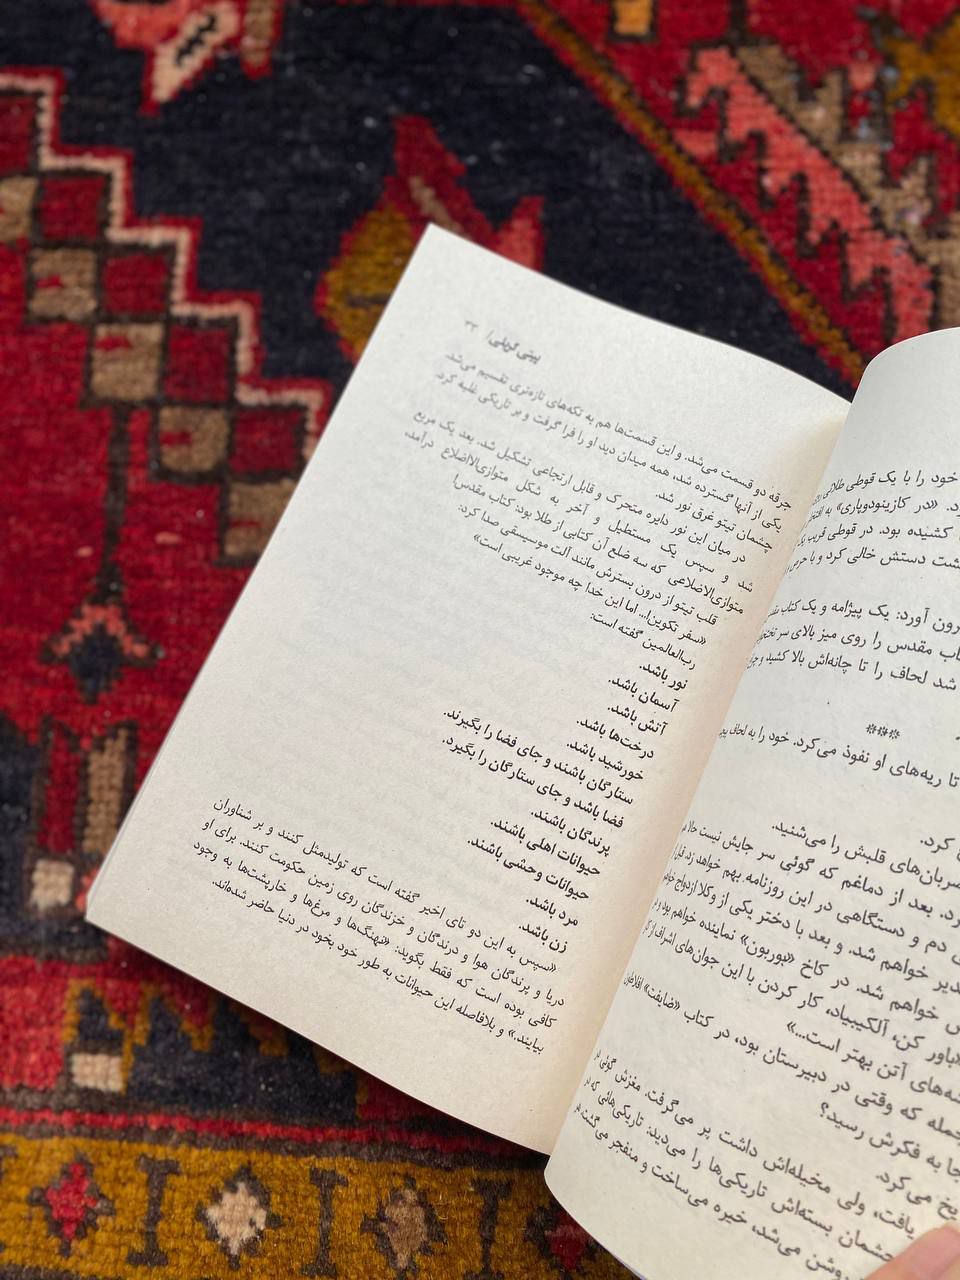 خود را با یک قوطی طلائی
«در کازینودوپاری» به
کشنده بود. در قوطی قریب
دستش خالی کرد و با حرص
آورد: یک پیژامه و یک کتاب
مقدس را روی میز بالای سر
شد لحاف را تا چانه‌اش بالا کشید و
***
تا ریه‌های او نفوذ می‌کرد. خود را به لحاف
کرد.
ضربان‌های قلبش را می‌شنید.
بعد از دماغم که گوئی سر جایش نیست حالا
دم و دستگاهی در این روزنامه بهم خواهد زد.
خواهم شد. و بعد با دختر یکی از وکلا ازدواج
خواهم شد. در کاخ «بوربون» نماینده خواهم بود و
«باور کن، آلکیبیاد، کار کردن با این جوان‌های اشراف از
آتن بهتر است...»
جمله که وقتی در دبیرستان بود، در کتاب «ضیافت» افلاطون
به فکرش رسید؟
می‌کرد.
یافت، ولی مخیله‌اش داشت پر می‌گرفت. مغزش گوئی
چشمان بسته‌اش تاریکی‌ها را می‌دید: تاریکی‌هائی که
می‌شد، خیره می‌ساخت و منفجر می‌گشت.
پیتی گریلی/ ۳۳
جرقه دو قسمت می‌شد. و این قسمت‌ها هم به تکه‌های تازه‌تری تقسیم می‌شد.
یکی از آنها گسترده شد، همه میدان دید او را فرا گرفت و بر تاریکی غلبه کرد.
چشمان تیتو غرق نور شد.
در میان این نور دایره متحرک و قابل ارتجاعی تشکیل شد. بعد یک مربع
شد و سپس یک مستطیل و آخر به شکل متوازی‌الاضلاع درآمد،
متوازی‌الاضلاعی که سه ضلع آن کتابی از طلا بود: کتاب مقدس!
قلب تیتو از درون بسترش مانند آلت موسیقی صدا کرد:
«سفر تکوین!... اما این خدا چه موجود غریبی است»
رب‌العالمین گفته است:
نور باشد.
آسمان باشد.
آتش باشد.
درخت‌ها باشد.
خورشید باشد.
ستارگان باشند و جای فضا را بگیرند.
فضا باشد و جای ستارگان را بگیرد.
پرندگان باشند.
حیوانات اهلی باشند.
حیوانات وحشی باشند.
مرد باشد.
زن باشد.
«سپس به این دو تای اخیر گفته است که تولیدمثل کنند و بر شناوران
دریا و پرندگان هوا و درندگان و خزندگان روی زمین حکومت کنند. برای او
کافی بوده است که فقط بگوید: «نهنگ‌ها و مرغ‌ها و خارپشت‌ها به وجود
بیایند.» و بلافاصله این حیوانات به طور خود بخود در دنیا حاضر شده‌اند.